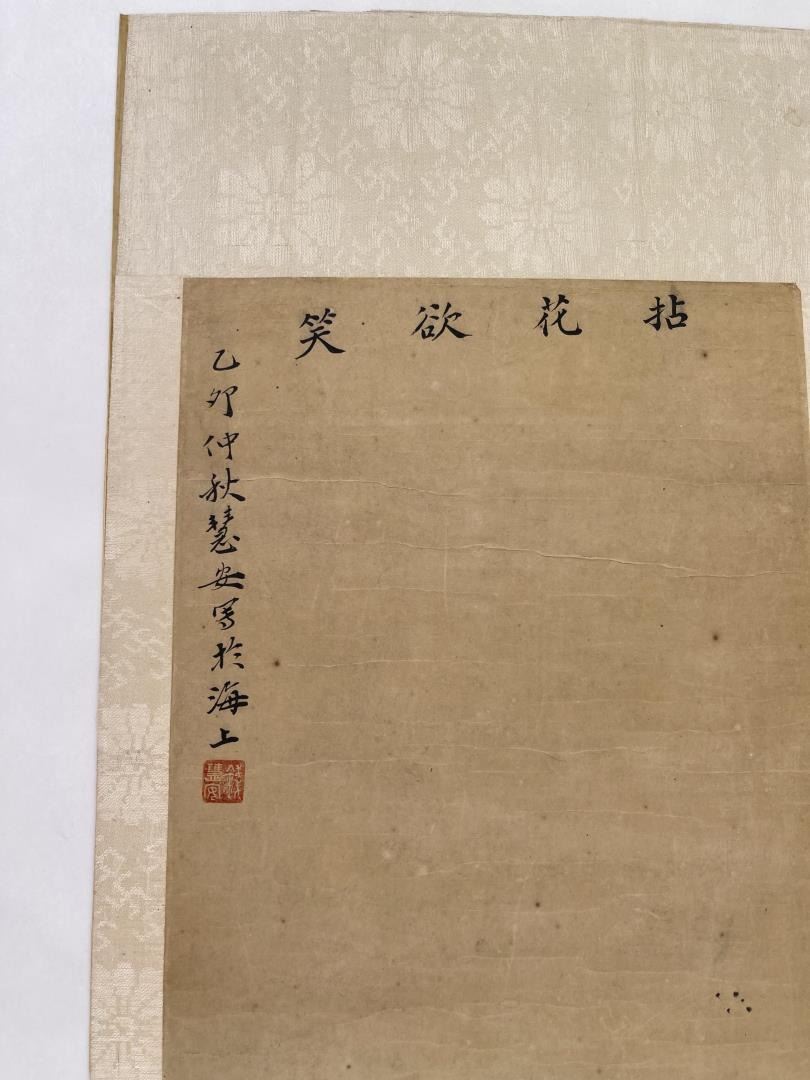 拈花欲笑
乙卯仲秋慧安寫於海上
錢慧安